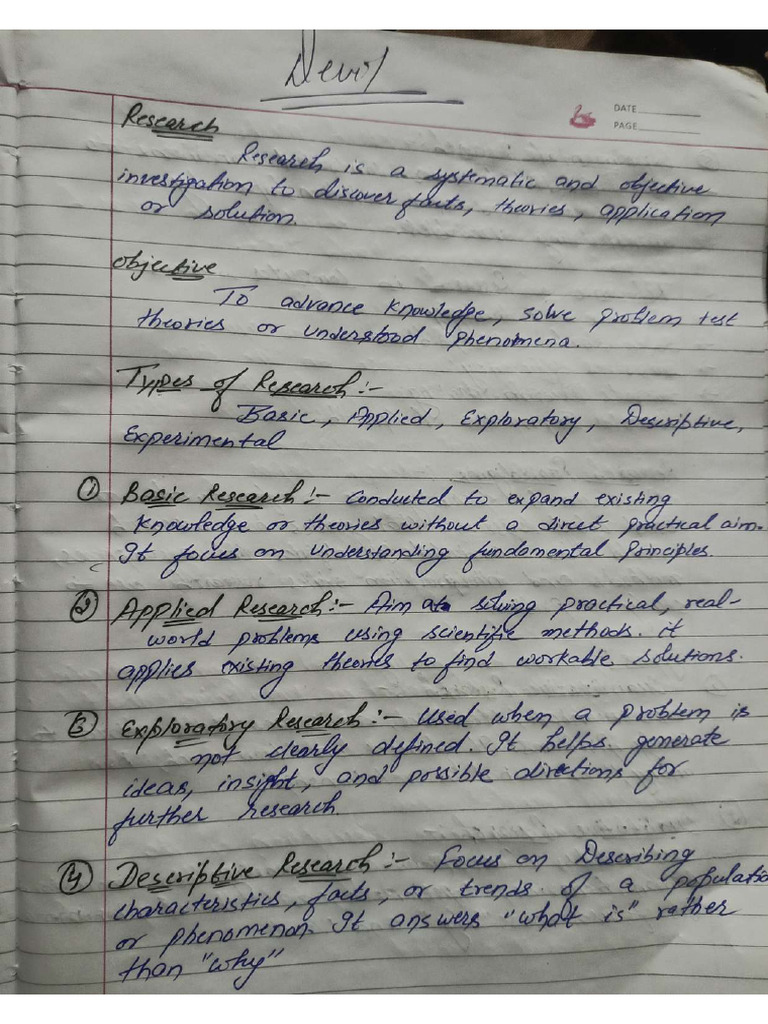 Devil
DATE
PAGE
Research
Research is a systematic and objective
investigation to discover facts, theories, application
or solution.
Objective
To advance knowledge, solve problem test
theories or understood phenomena.
Types of Research:-
Basic, Applied, Exploratory, Descriptive,
Experimental
① Basic Research:- Conducted to expand existing
knowledge or theories without a direct practical aim.
It focus on understanding fundamental principles.
② Applied Research:- Aim at solving practical, real-
world problems using scientific methods. it
applies existing theories to find workable solutions.
③ Exploratory Research:- Used when a problem is
not clearly defined. It helps generate
ideas, insight, and possible directions for
further research.
④ Descriptive Research:- Focus on Describing
characteristics, facts, or trends of a populatio
or phenomenon. It answers "what is" rather
than "why"